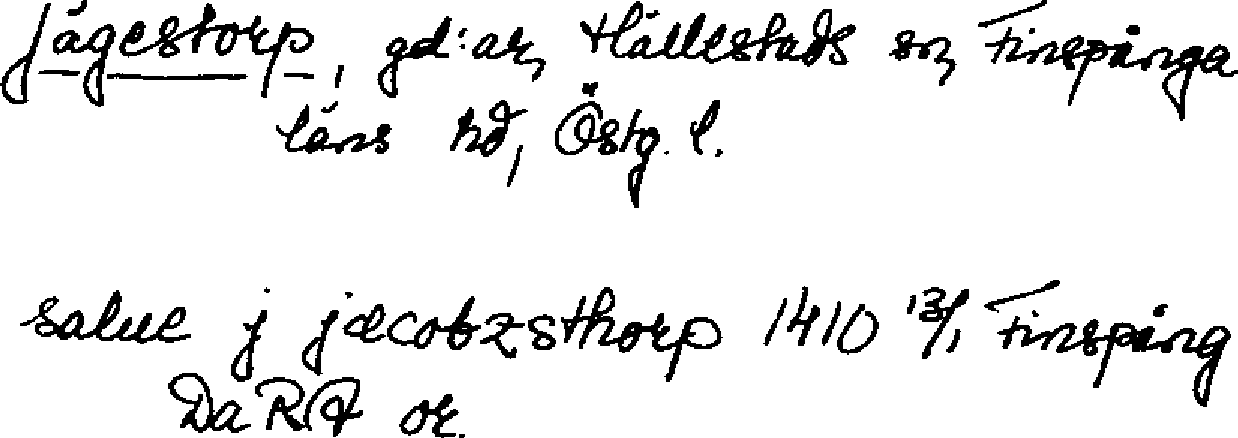 Jägestorp, gd:ar, Hällestads sn, Finspånga
läns hd, Östg. l.
salue j jæcobzsthorp 1410 13/1 Finspång
DaRA or.